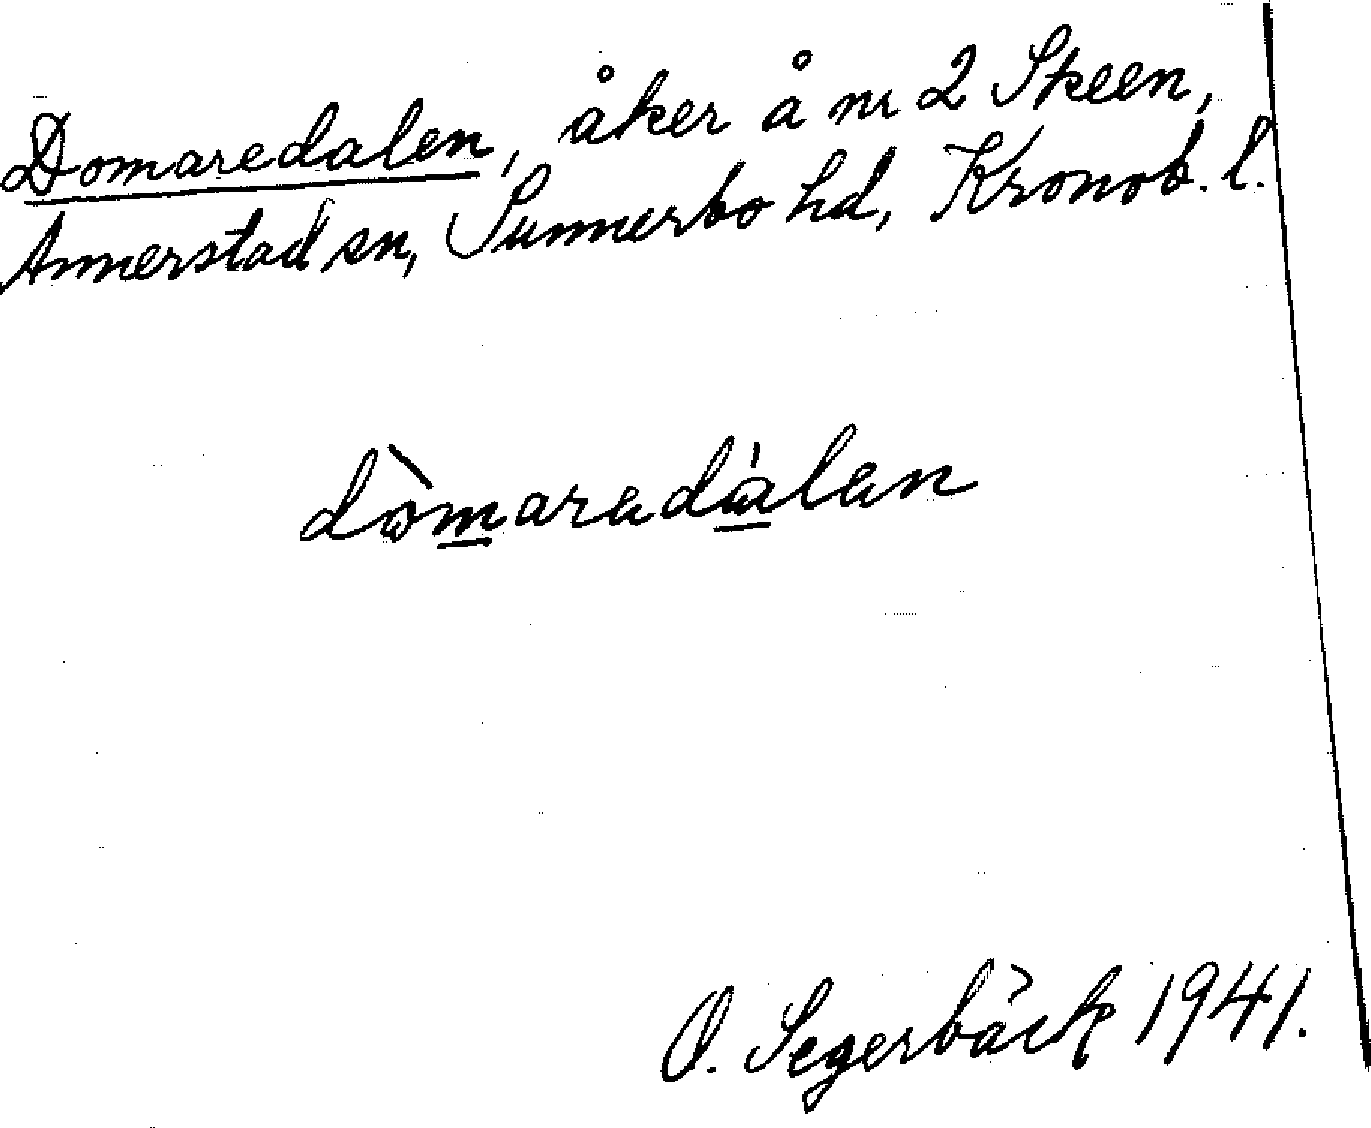 Domaredalen, åker å nr 2 Skeen,
Annerstad sn, Sunnerbo hd, Kronob. l.
dòmaredálen
O. Segerbäck 1941.